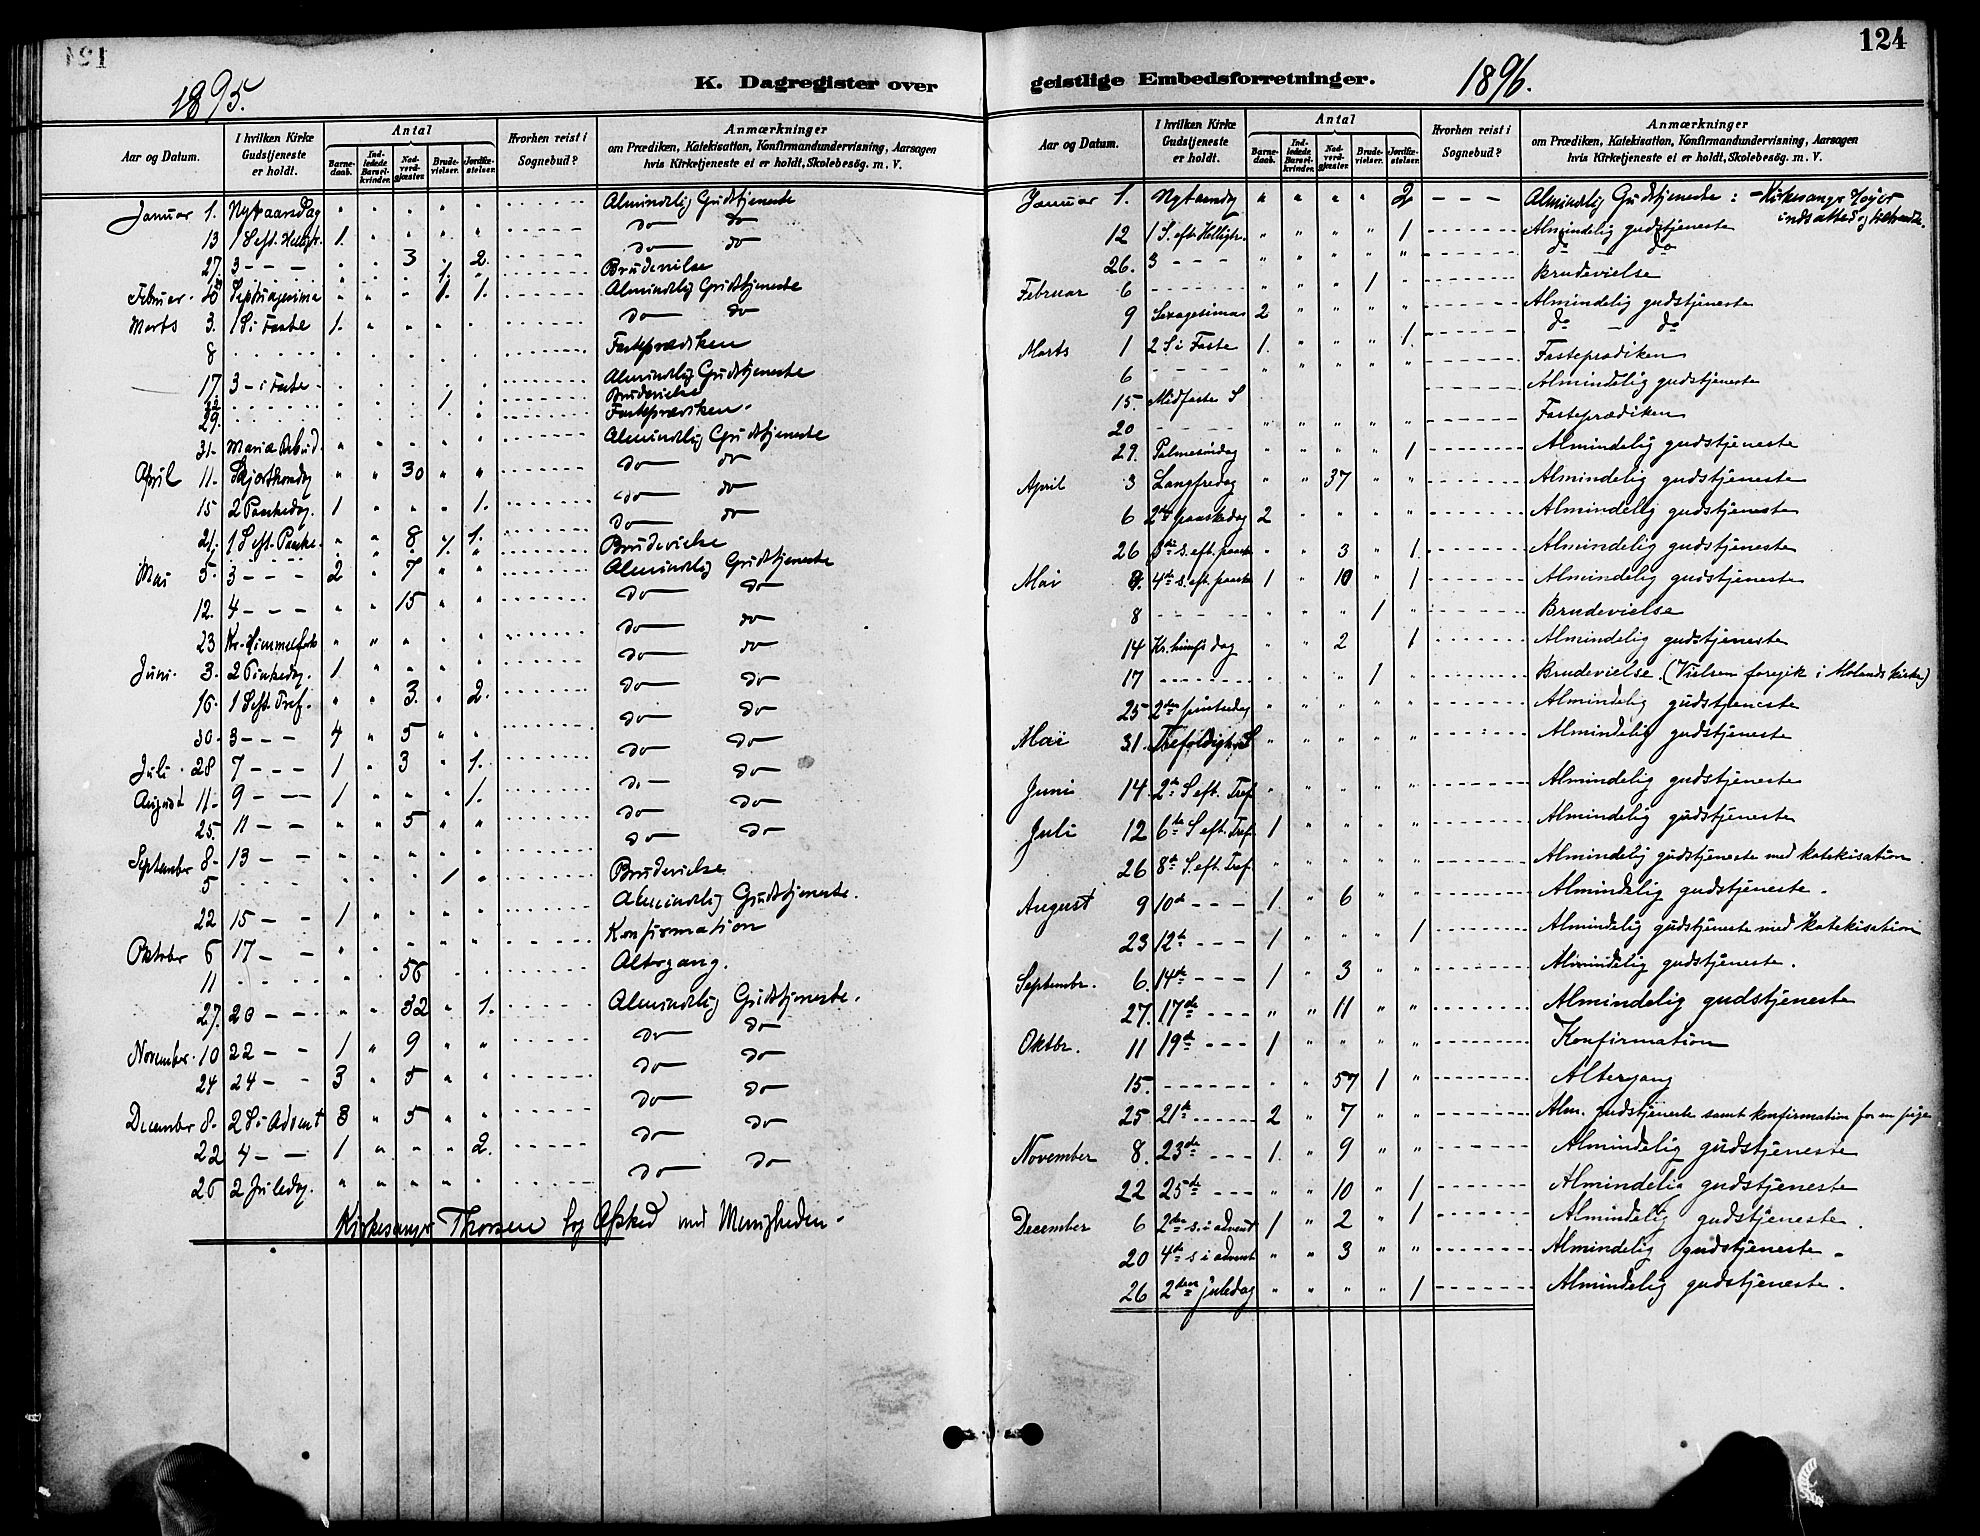 124
1895.
K. Dagregister over
Aar og Datum. | I hvilken Kirke Gudstjeneste er holdt. | Antal | Barne-daab. | Ind-ledede Barsel-kvinder. | Nad-verd-gjæster. | Brude-vielser. | Jordfæ-stelser. | Hvorhen reist i Sognebud? | Anmærkninger om Prædiken, Katekisation, Konfirmandundervisning, Aarsagen hvis Kirketjeneste ei er holdt, Skolebesög. m. V.
Januar 1. Nytaarsdag " " " " " Almindelig Gudstjeneste
13 1 S. eft. Helligtr. 1. " " " " do do
27. 3 - - - " " 3 " 2. do do
1. Brudevielse
Februar. Septuagesima " " " 1. 1. Almindelig Gudstjeneste
Marts 3. 1 S. i Faste 1. " " " " do do
8 Fasteprædiken
17. 3 - i Faste Almindelig Gudstjeneste
22. 1 Brudevielse
29. Fasteprædiken.
31. Maria Bebud. " " " " " Almindelig Gudstjeneste
April 11. Skjærthorsdag " " 30 " " do do
15 2 Paaskedag. 1 " " " 1. do do
21. 1 S. eft. Paaske. " " 8 " 1. do do
1. Brudevielse
Mai 5. 3 - - - 2 " 7 " " Almindelig Gudstjeneste
12. 4 - - - " " 15 " " do do
23 Kr. Himmelfart " " " " " do do
Juni. 3. 2 Pintsedag. 1 " " " " do do
16. 1 S. eft. Tref. " " 3. " 2. do do
30. 3 - - - 4 " 5 " " do do
Juli. 28 7 - - - 1 " 3 " 1. do do
August 11. 9 - - - 1 " " " 1. do do
25. 11 - - " " 5 " " do do
September 8. 13 - - " " " " " do do
5 " " " 1 " Brudevielse
22 15 - - 1 " " " " Almindelig Gudstjeneste.
Oktober 6 17 - - " " " " " Konfirmation
11 " " 56 Altergang.
27. 20 - - " " 32 " 1. Almindelig Gudstjeneste.
November. 10 22 - - 1 " 9 " " do do
24 24 - - 3 " 5 " " do do
December 8. 2 S. i Advent 3 " 5 " " do do
22 4 - - 1 " " " 2. do do
26 2 Juledag. " " " " " do do
Kirkesanger Thorsen tog Afsked med Menigheden.
124
geistlige Embedsforretninger.
1896.
Aar og Datum. | I hvilken Kirke Gudstjeneste er holdt. | Antal | Barne-daab. | Ind-ledede Barsel-kvinder. | Nad-verd-gjæster. | Brude-vielser. | Jordfæ-stelser. | Hvorhen reist i Sognebud? | Anmærkninger om Prædiken, Katekisation, Konfirmandundervisning, Aarsagen hvis Kirketjeneste ei er holdt, Skolebesög. m. V.
Januar 1. Nytaarsdag " " " " 2 - - - Almindelig Gudstjeneste: - Kirkesanger
indsatted og tiltraadte.
12 1 S. eft. Helligtr. " " " " 1 Almindelig gudstjeneste
26. 3 - - - " " " " " do do
Februar 6 " " " 1 " Brudevielse
9 Sexagesima 2 " " " " Almindelig gudstjeneste
Marts 1 2 S. i Faste 1. " " " 1. do - do
6 " " " " " Fasteprædiken
15. Midfaste S Almindelig gudstjeneste
20 " " " " " Fasteprædiken
29. Palmesöndag " " " " 1 Almindelig gudstjeneste
April 3 Langfredag " " 37 " " Almindelig gudstjeneste
6 2den paaskedag 2 " " " " Almindelig gudstjeneste
26 3die s. eft. paaske " " 3 " 1. Almindelig gudstjeneste
Mai 4de s. eft. paaske 1 " 10 " 1 Almindelig gudstjeneste
8 " " " 1 " Brudevielse
14 Kr. himfs dag " " 2 " 1 Almindelig gudstjeneste
17 " " " 1 " Brudevielse (Vielsen foregik i Molands kirke)
25 2den pintsedag " " " " " Almindelig gudstjeneste
Mai 31. Trefoldigheds S " " " " " Almindelig gudstjeneste
Juni 14. 2den S. eft. Tref. " " " " " Almindelig gudstjeneste
Juli 12 6te S. eft. Tref. 1 " " " " Almindelig gudstjeneste
26 8de S. eft. Tref. " " " " " Almindelig gudstjeneste med katekisation
August 9 10de - - - 1 " 6 " " Almindelig gudstjeneste.
23 12te - - - 1 " " " 1 Almindelig gudstjeneste med katekisation
Septembr. 6. 14de - - - 1 " 3 " " Almindelig gudstjeneste.
27. 17de - - - " " 11 " " Almindelig gudstjeneste
Oktbr. 11 19de - - - 1 " " " " Konfirmation
15. " " 57 1 " Altergang
25 21de - - - 2 " 7 " " Alm. gudstjeneste samt konfirmation for en pige
November 8. 23de - - - 1. " 9 " " Almindelig gudstjeneste
22 25de - - - " " 10 " 1 Almindelig gudstjeneste
December 6 2den s. i advent 1 " 2 " 1 Almindelig gudstjeneste.
20 4de s. i advent " " 3 " " Almindelig gudstjeneste.
26 2den juledag " " " " 1 Almindelig gudstjeneste.